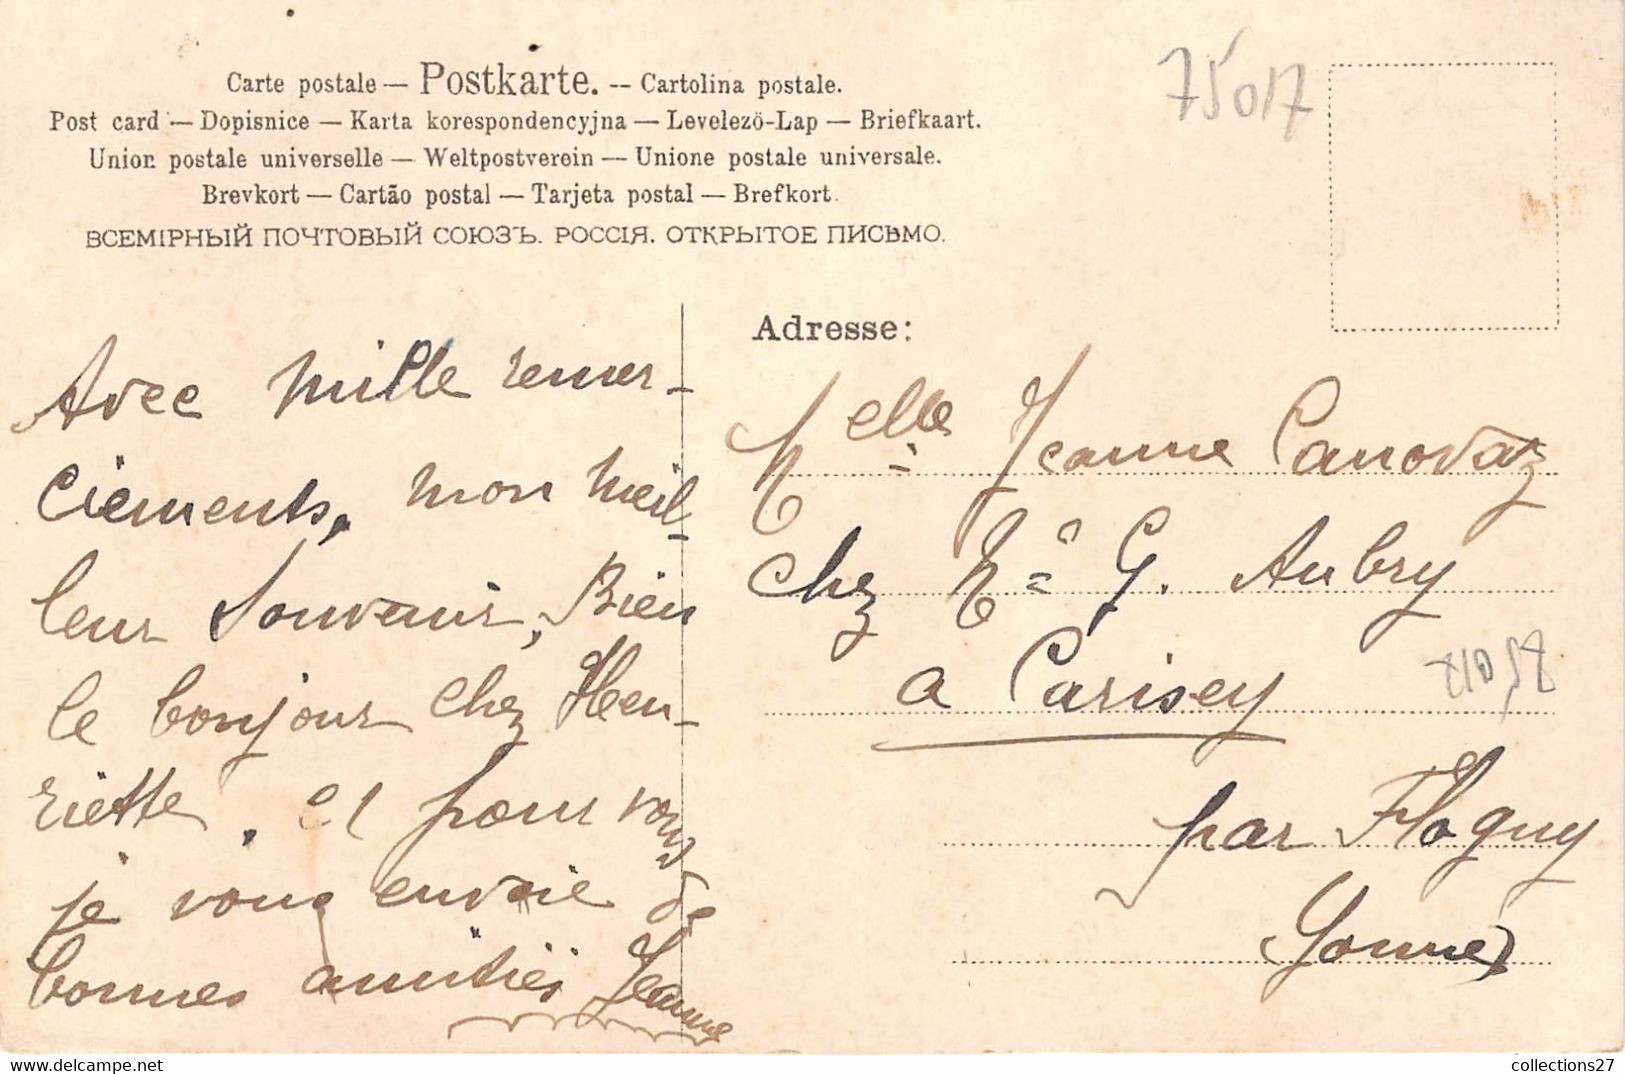 Carte postale — Postkarte. -- Cartolina postale.
Post card — Dopisnice — Karta korespondencyjna — Levelezö-Lap — Briefkaart.
Union postale universelle — Weltpostverein — Unione postale universale.
Brevkort — Cartão postal — Tarjeta postal — Brefkort.
ВСЕМІРНЫЙ ПОЧТОВЫЙ СОЮЗЪ. РОССІЯ. ОТКРЫТОЕ ПИСЬМО.
75017
Avec mille remer-
ciements, mon meil-
leur souvenir, Bien
le bonjour chez Hen-
riette, et pour vous
je vous envoie de
bonnes amitiés Jeanne
Adresse:
Melle Jeanne Canovaz
chez Me G. Aubry
a Carisey
par Flogny
Yonne)
75017
www.delcampe.net
collections27